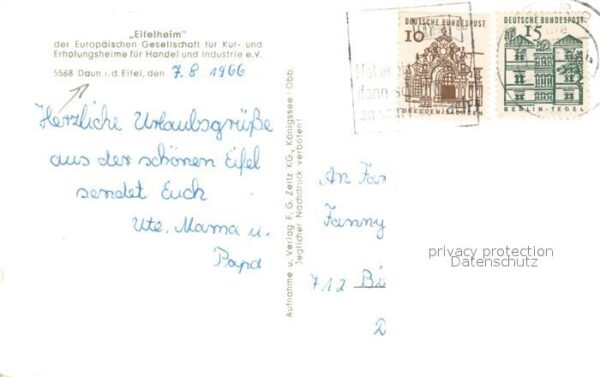 „Eifelheim"
der Europäischen Gesellschaft für Kur- und
Erholungsheime für Handel und Industrie e.V.
5568 Daun i. d. Eifel, den 7.8.1966
Herzliche Urlaubsgrüße
aus der schönen Eifel
sendet Euch
Ute, Mama u.
Papa
Aufnahme u. Verlag F. G. Zeitz KG., Königssee / Obb.
Jeglicher Nachdruck verboten!
DEUTSCHE BUNDESPOST
10
DRESDEN/SACHSEN
DEUTSCHE BUNDESPOST
15
BERLIN-TEGEL
An Fa
Fanny
712 Bi
D
privacy protection
Datenschutz